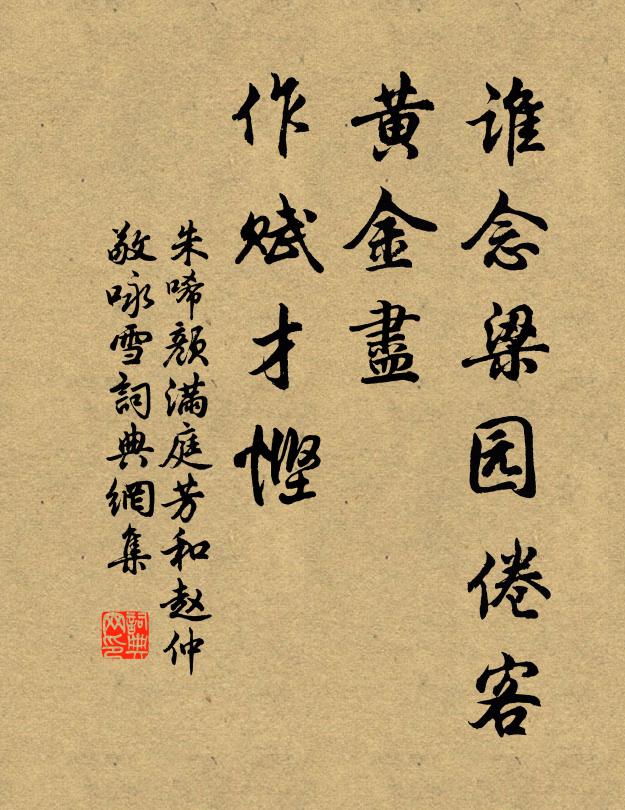 谁念梁园倦客
黄金盡
作赋才慳
朱唏颜满庭芳和赵仲
敬咏雪詞典網集
詞典网印